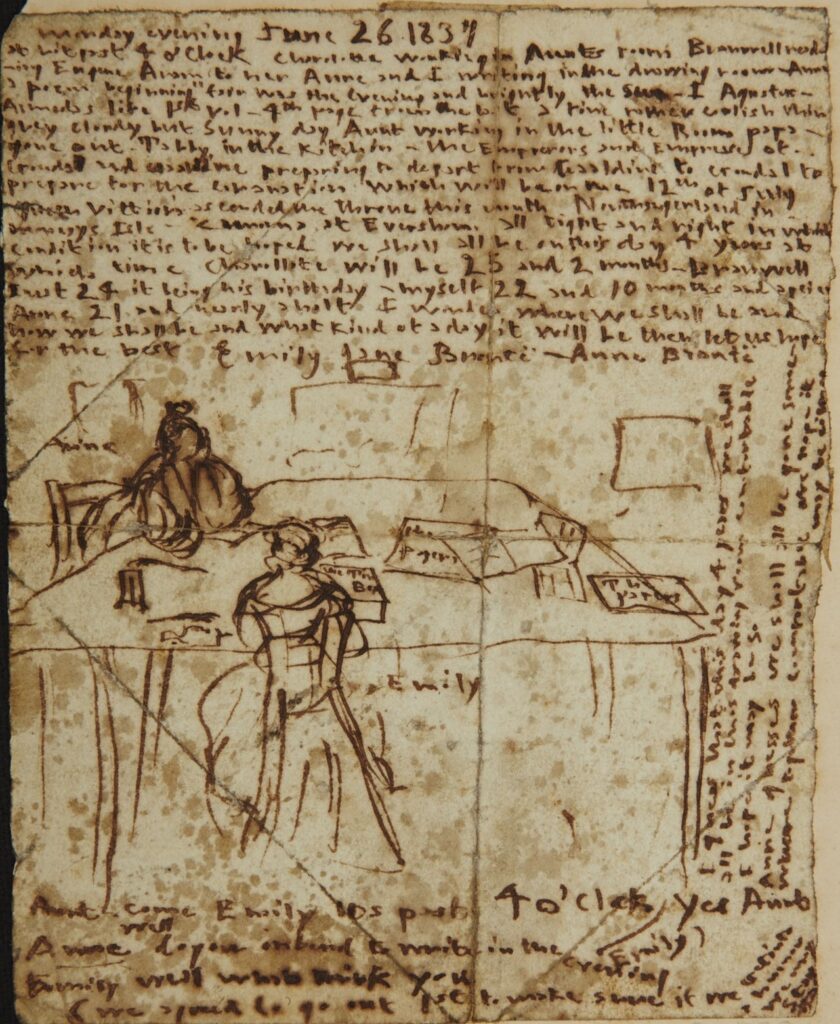 Monday evening June 26 1837
A bit past 4 o'Clock Charolotte working in Aunts room Branwell reading
Eugene Aram to her Anne and I writing in the drawing room - Anne
a poem beginning "fair was the evening and brightly the sun - I Agustus -
Almedas life 1st vol - 4th page from the last a fine rather coolish thin
grey cloudy but Sunny day Aunt working in the little Room papa -
gone out. Tabby in the Kitchin - the Emperors and Empresses of
Gondal and Gaaldine preparing to depart from Gaaldine to Gondal to
prepare for the coranation which will be on the 12th of July
Queen Vittiora ascended the throne this month Northangerland in
Monceys Isle - Zamorna at Eversham. all tight and right in which
condition it is to be hoped we shall all be on this day 4 years at
which time Charollote will be 25 and 2 months - Branwell
just 24 it being his birthday - myself 22 and 10 months and a peice
Anne 21 and nearly a half I wonder where we shall be and
how we shall be and what kind of a day it will be then let us hope
for the best
Emily Jane Brontë - Anne Brontë
I guess that this day 4 years we shall
all be in this drawing room comfortable
I hope it may be so
Anne guesses we shall all be gone somewhere
together comfortable We hope it
may be
Anne
The
papers
The Tin
Box
The
papers
Emily
Aunt come Emily its past 4 o'Clock Yes Aunt
Anne well do you intend to write in the evening
Emily
Emily well what think you
(we agreed to go out 1st to make sure if we